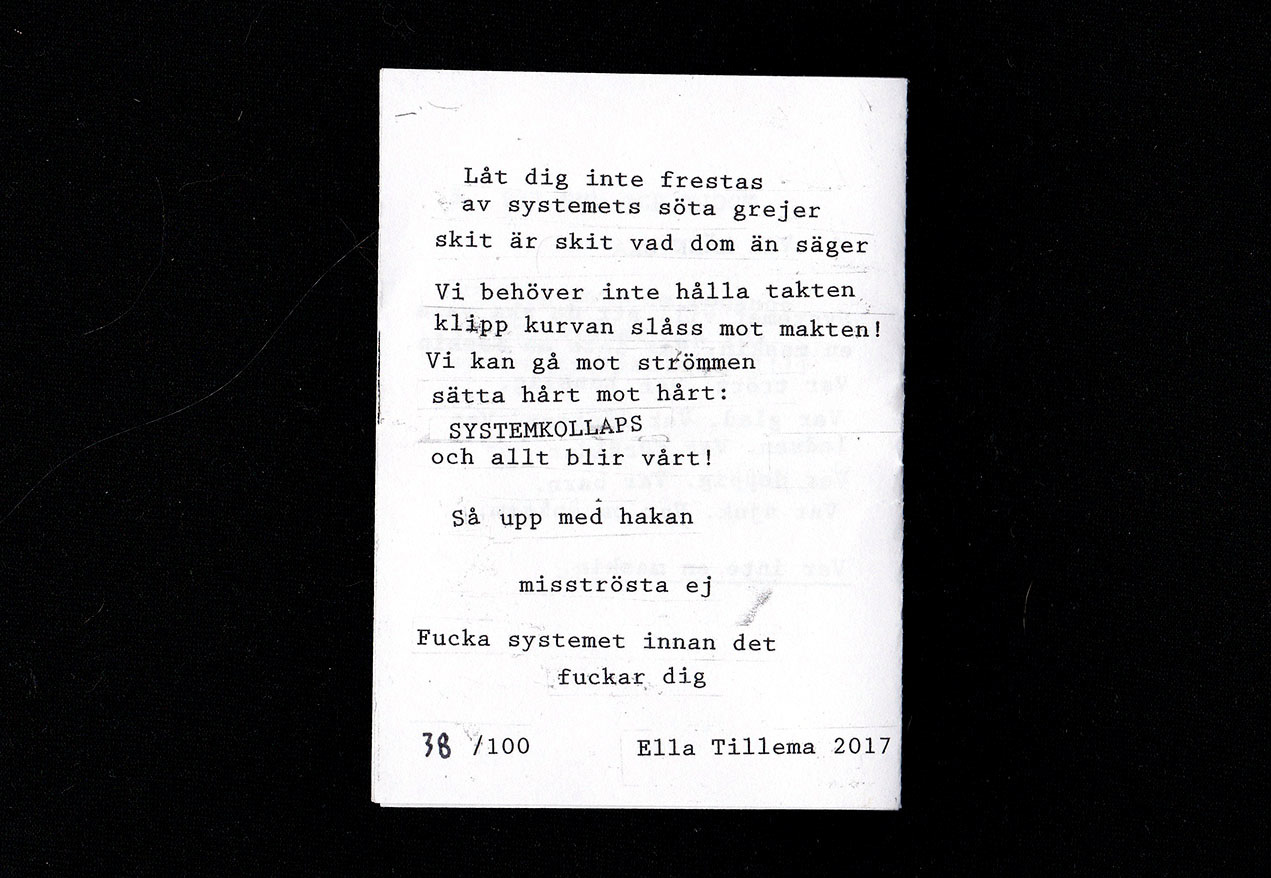 Låt dig inte frestas
av systemets söta grejer
skit är skit vad dom än säger
Vi behöver inte hålla takten
klipp kurvan slåss mot makten!
Vi kan gå mot strömmen
sätta hårt mot hårt:
SYSTEMKOLLAPS
och allt blir vårt!
Så upp med hakan
misströsta ej
Fucka systemet innan det
fuckar dig
38 /100 Ella Tillema 2017